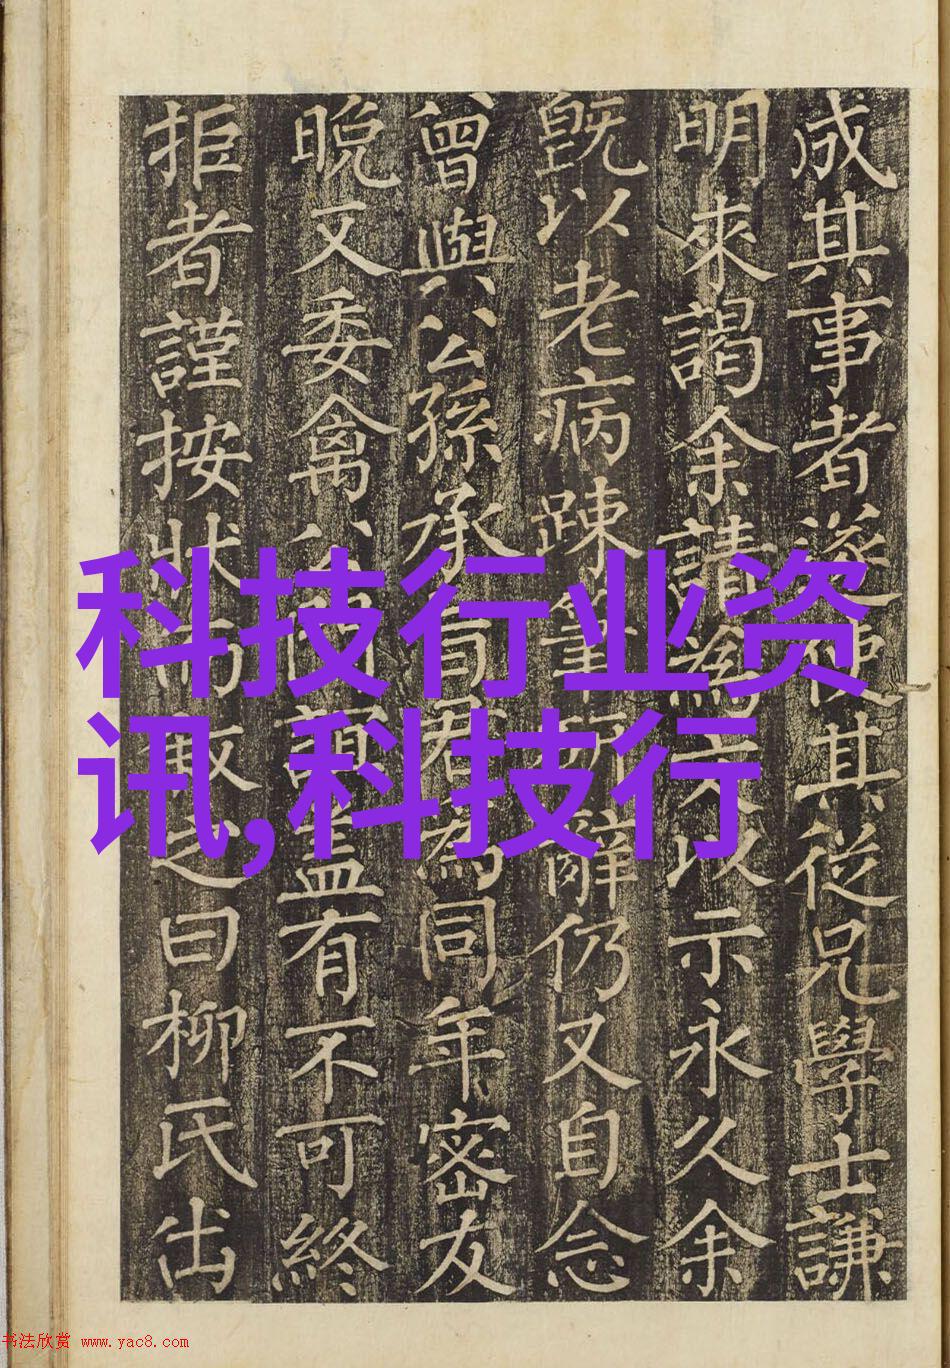 成其事者遂使其從兄學士謙
明來謁余請為文以示永久余
既以老病踈筆硯辭仍又自念
曾與公孫承旨君為同年密友
晚又委禽公門誼盖有不可終
拒者謹按狀而敘之曰柳氏出
科技行业资
讯,科技行
书法欣赏 www.yac8.com